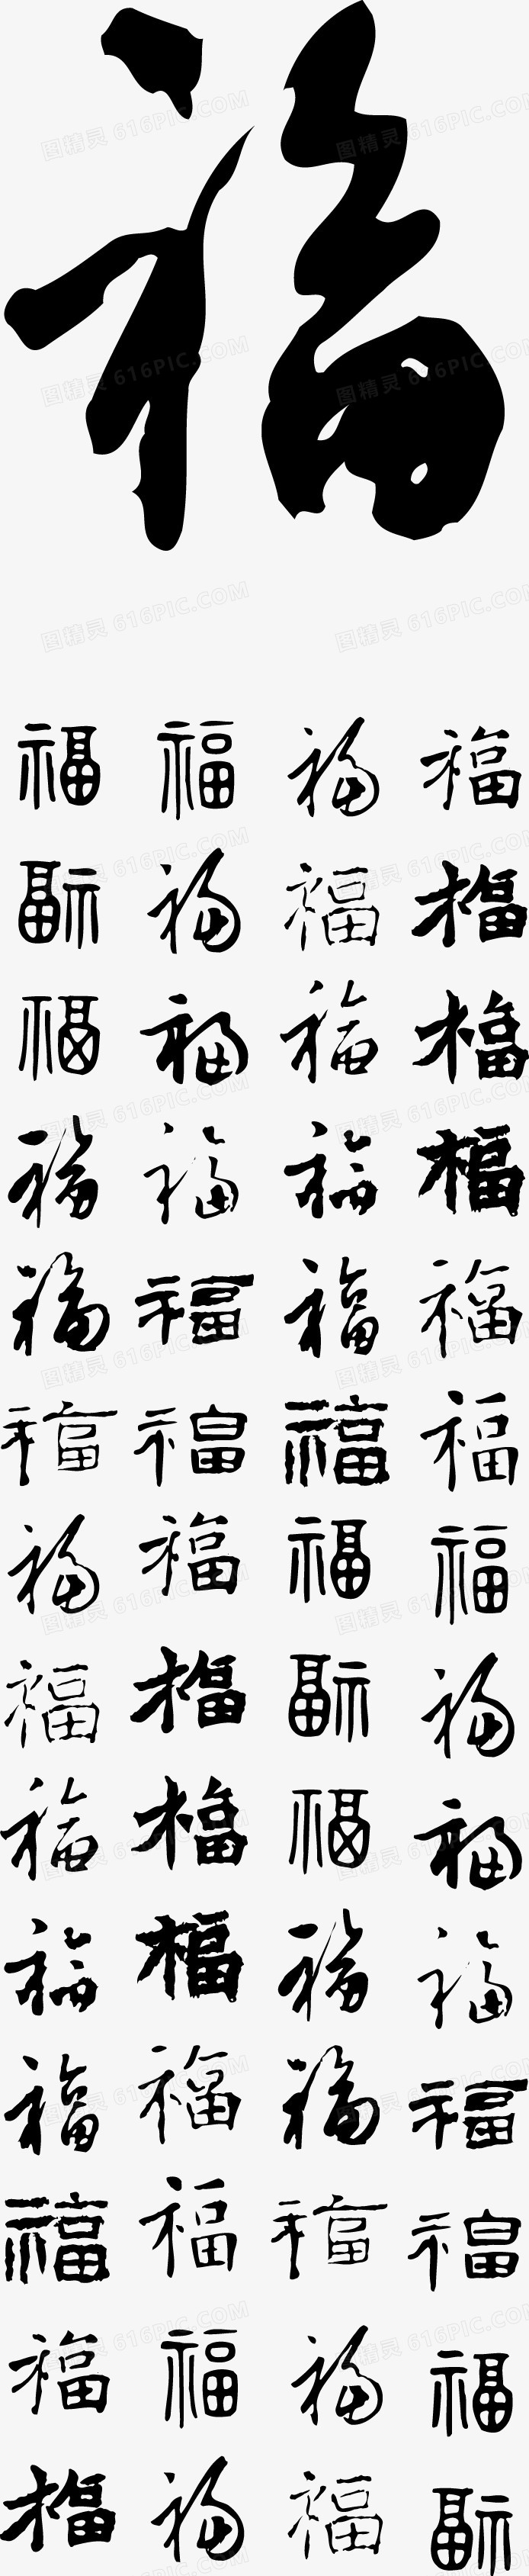 福
福 福 福 福
福 福 福 福
福 福 福 福
福 福 福 福
福 福 福 福
福 福 福 福
福 福 福 福
福 福 福 福
福 福 福 福
福 福 福 福
福 福 福 福
福 福 福 福
福 福 福 福
福 福 福 福
图精灵 616PIC.COM